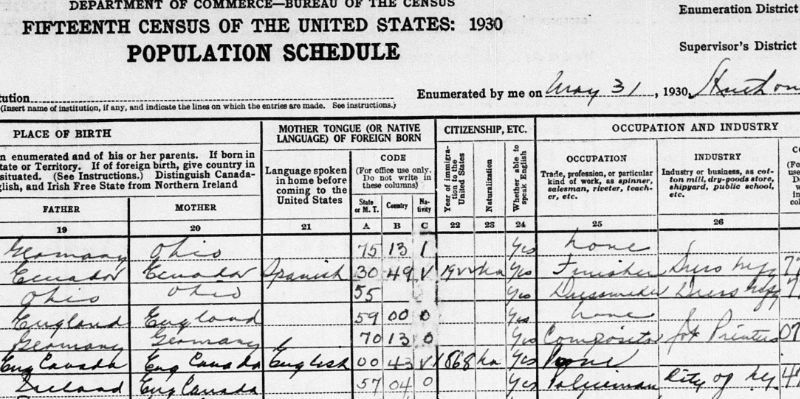 DEPARTMENT OF COMMERCE—BUREAU OF THE CENSUS
FIFTEENTH CENSUS OF THE UNITED STATES: 1930
POPULATION SCHEDULE
Enumeration District
Supervisor's District
tution
(Insert name of institution, if any, and indicate the lines on which the entries are made. See instructions.)
Enumerated by me on May 31, 1930,
PLACE OF BIRTH
n enumerated and of his or her parents. If born in
tate or Territory. If of foreign birth, give country in
situated. (See Instructions.) Distinguish Canada-
glish, and Irish Free State from Northern Ireland
FATHER MOTHER
19 20
MOTHER TONGUE (OR NATIVE
LANGUAGE) OF FOREIGN BORN
Language spoken
in home before
coming to the
United States
21
CODE
(For office use only.
Do not write in
these columns)
State or M. T. Country Nativity
A B C
CITIZENSHIP, ETC.
Year of immigration to the United States
Naturalization
Whether able to speak English
22 23 24
OCCUPATION AND INDUSTRY
OCCUPATION
Trade, profession, or particular
kind of work, as spinner,
salesman, riveter, teach-
er, etc.
25
INDUSTRY
Industry or business, as cot-
ton mill, dry-goods store,
shipyard, public school,
etc.
26
Germany Ohio 75 13 1 Yes none
Ecuador Ecuador Spanish 30 49 V na Yes Finisher Dress mfg 77
Ohio Ohio 55 Yes Dressmaker Dress mfg 7
England England 59 00 0 Yes none
Germany Germany 70 13 0 Yes Compositor Job Printers 07
Eng Canada Eng Canada English 00 43 V 1868 na Yes none
Ireland Eng Canada 57 04 0 Yes Policeman City of NY 4